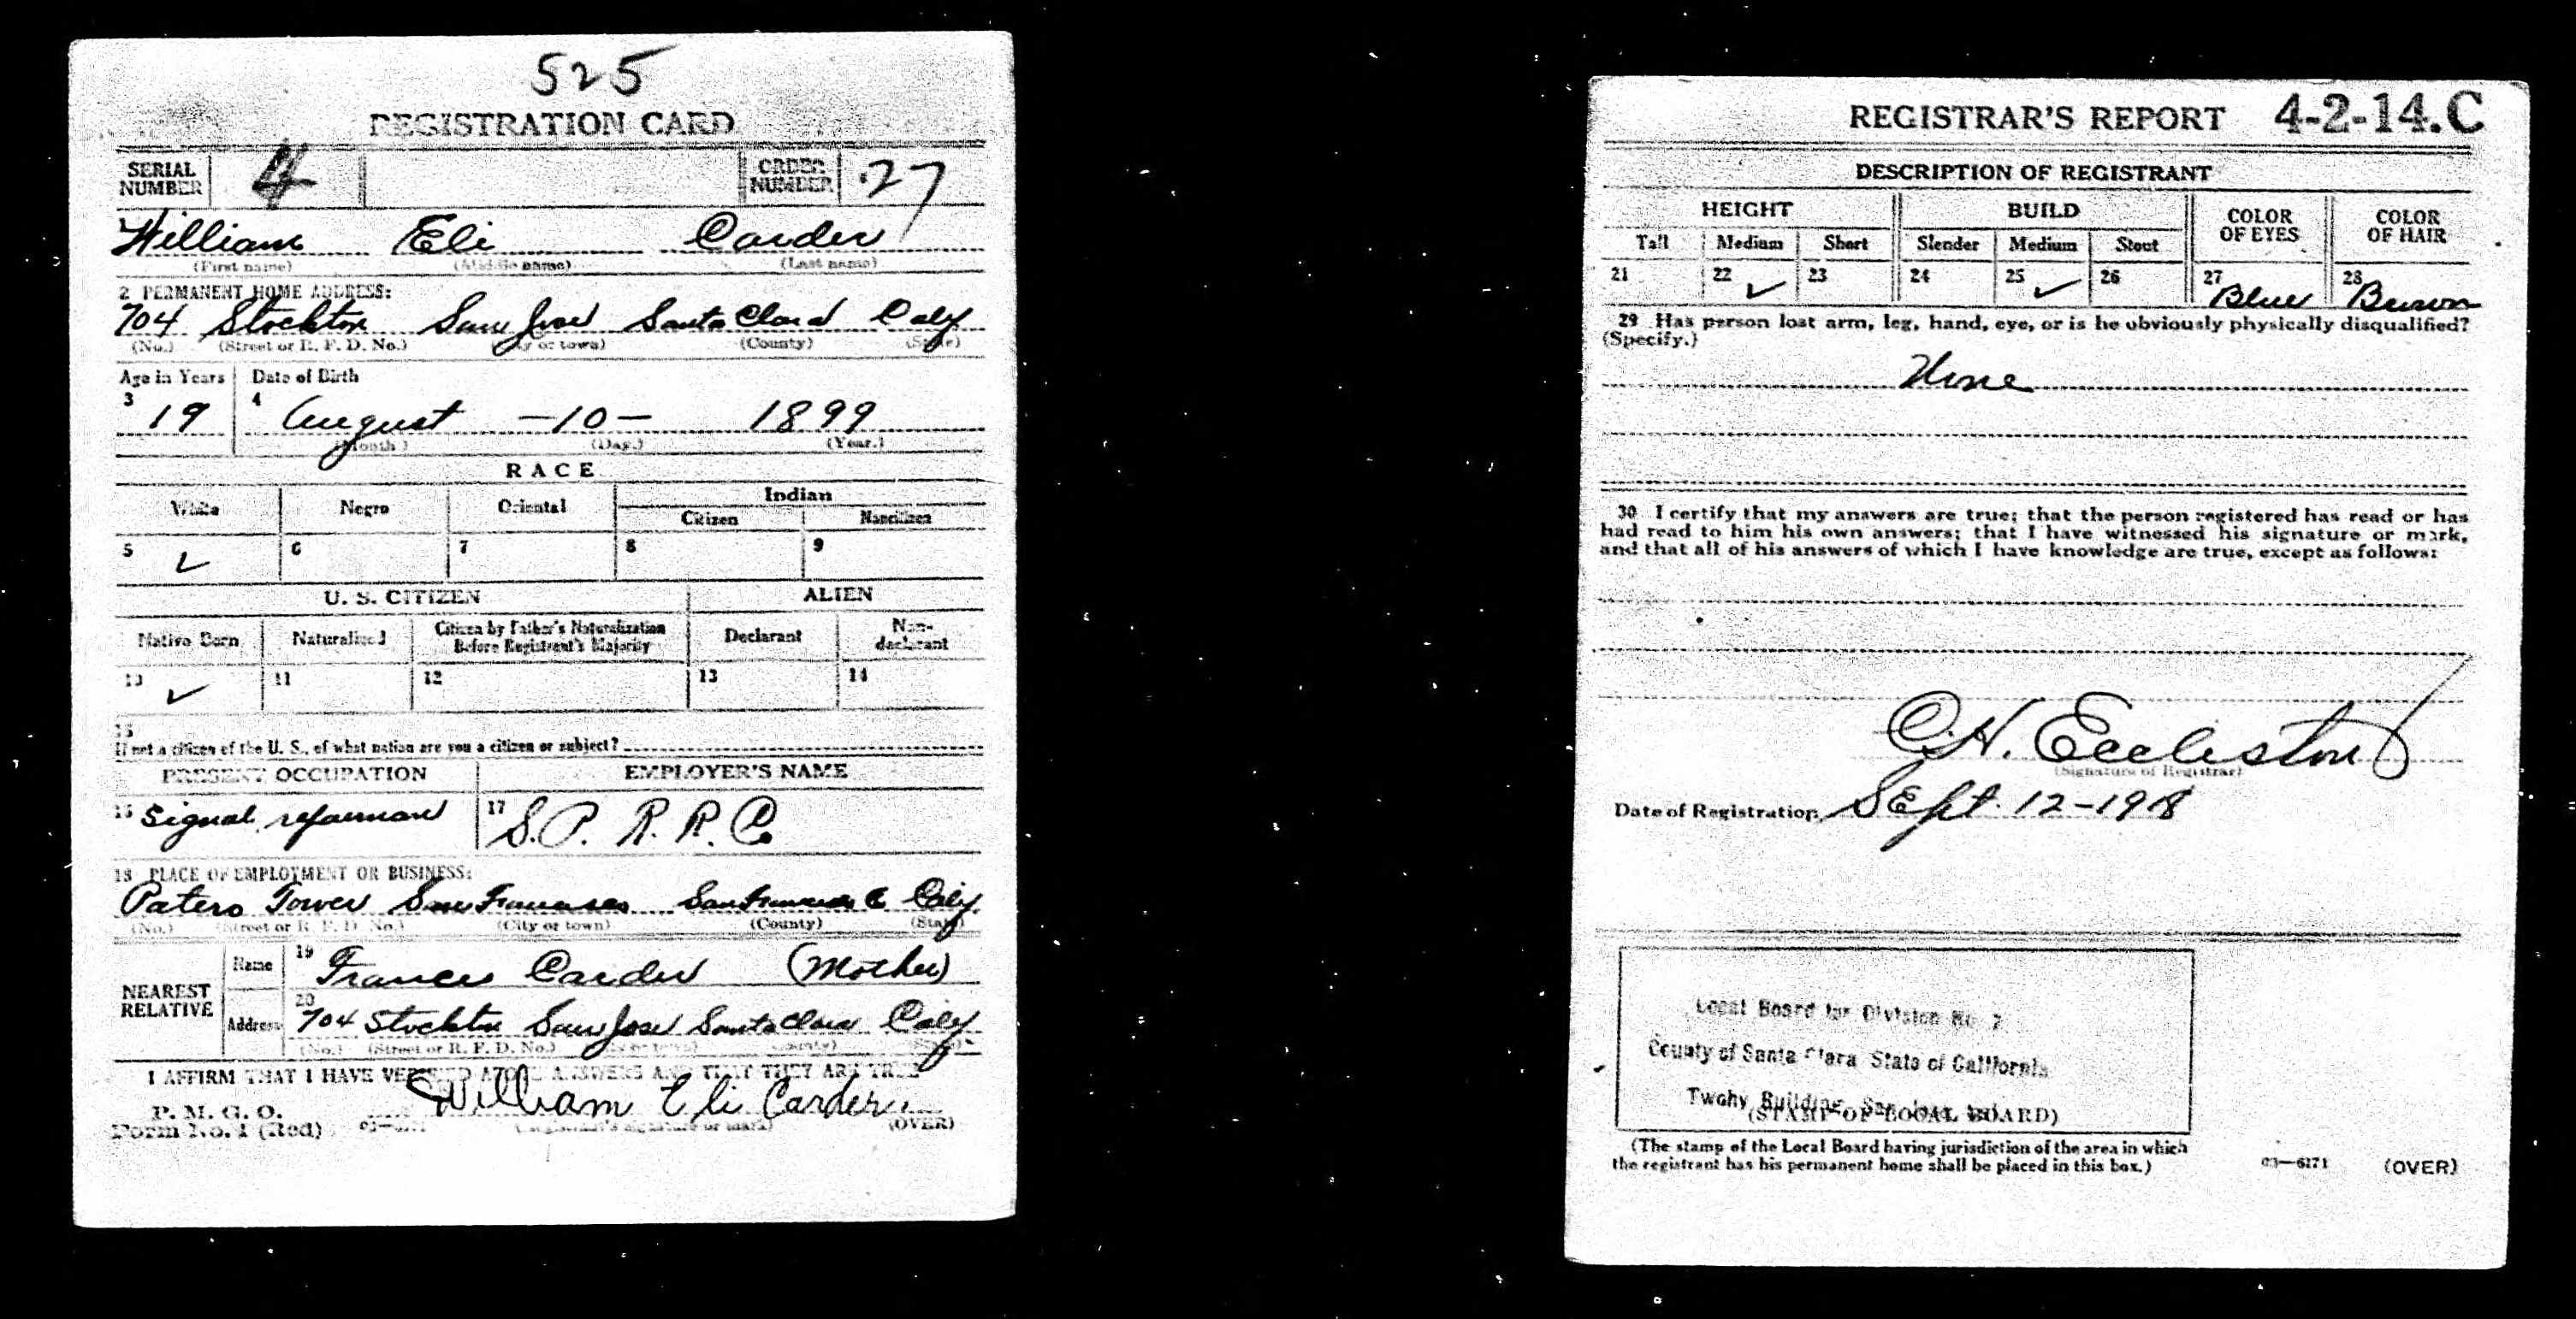 525
REGISTRATION CARD
SERIAL NUMBER 4 ORDER NUMBER 27
1 William Eli Carder
(First name) (Middle name) (Last name)
2 PERMANENT HOME ADDRESS:
704 Stockton San Jose Santa Clara Calif
(No.) (Street or R. F. D. No.) (City or town) (County) (State)
Age in Years Date of Birth
3 19 4 August -10- 1899
(Month.) (Day.) (Year.)
RACE
White Negro Oriental Indian
Citizen Noncitizen
5 ✓ 6 7 8 9
U. S. CITIZEN ALIEN
Native Born Naturalized Citizen by Father's Naturalization Before Registrant's Majority Declarant Non-declarant
10 ✓ 11 12 13 14
15
If not a citizen of the U. S., of what nation are you a citizen or subject?
PRESENT OCCUPATION EMPLOYER'S NAME
16 Signal repairman 17 S.P. R.R. Co
18 PLACE OF EMPLOYMENT OR BUSINESS:
Patero Tower San Francisco San Francisco Calif.
(No.) (Street or R. F. D. No.) (City or town) (County) (State)
NEAREST RELATIVE
Name 19 Frances Carder (Mother)
Address 20 704 Stockton San Jose Santa Clara Calif
(No.) (Street or R. F. D. No.) (City or town) (County) (State)
I AFFIRM THAT I HAVE VERIFIED ABOVE ANSWERS AND THAT THEY ARE TRUE
P. M. G. O.
Form No. 1 (Red) William Eli Carder
(Registrant's signature or mark) (OVER)
REGISTRAR'S REPORT 4-2-14.C
DESCRIPTION OF REGISTRANT
HEIGHT BUILD COLOR OF EYES COLOR OF HAIR
Tall Medium Short Slender Medium Stout
21 22 ✓ 23 24 25 ✓ 26 27 Blue 28 Brown
29 Has person lost arm, leg, hand, eye, or is he obviously physically disqualified?
(Specify.)
None
30 I certify that my answers are true; that the person registered has read or has
had read to him his own answers; that I have witnessed his signature or mark,
and that all of his answers of which I have knowledge are true, except as follows:
C.H. Eccleston
(Signature of Registrar)
Date of Registration Sept. 12-1918
Local Board for Division No. 2
County of Santa Clara State of California
Twohy Building, San Jose, Cal.
(STAMP OF LOCAL BOARD)
(The stamp of the Local Board having jurisdiction of the area in which
the registrant has his permanent home shall be placed in this box.)
03—6171 (OVER)